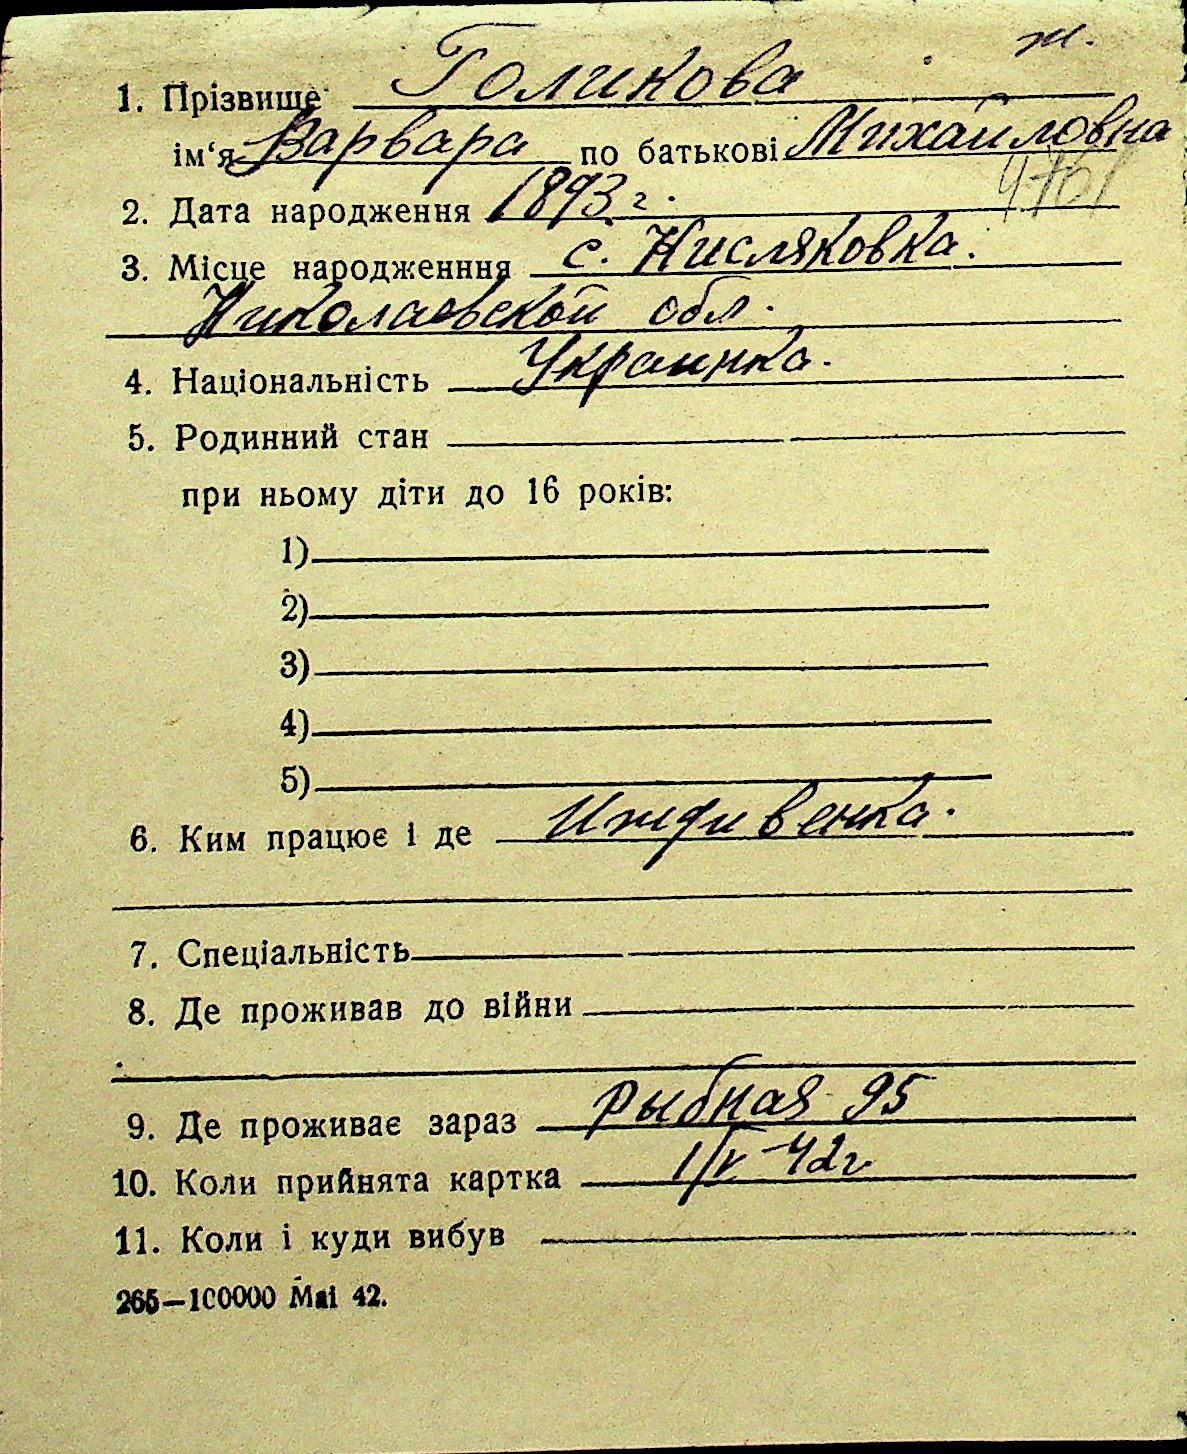 ж.
1. Прізвище Голикова
ім‘я Варвара по батькові Михайловна
2. Дата народження 1893 г.
3. Місце народженння с. Кисляковка.
Николаевской обл.
4. Національність Украинка.
5. Родинний стан
при ньому діти до 16 років:
1)
2)
3)
4)
5)
6. Ким працює і де Иждивенка.
7. Спеціальність
8. Де проживав до війни
9. Де проживає зараз Рыбная 95
10. Коли прийнята картка 1/V-42г.
11. Коли і куди вибув
265—100000 Mai 42.